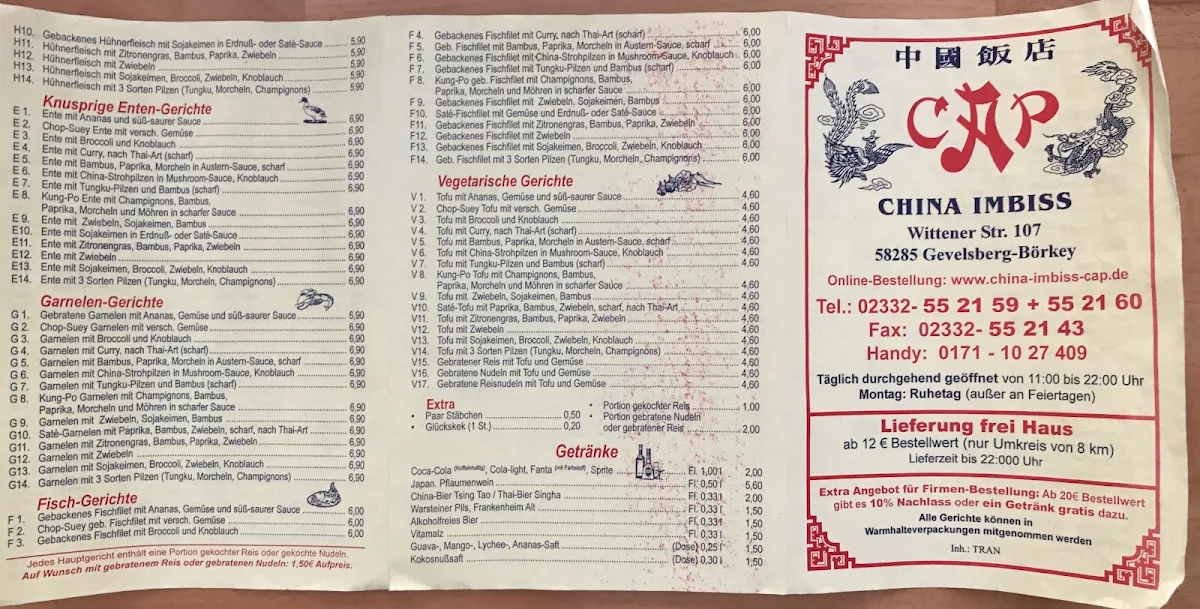 H10. Gebackenes Hühnerfleisch mit Sojakeimen in Erdnuß- oder Saté-Sauce 5,90
H11. Hühnerfleisch mit Zitronengras, Bambus, Paprika, Zwiebeln 5,90
H12. Hühnerfleisch mit Zwiebeln 5,90
H13. Hühnerfleisch mit Sojakeimen, Broccoli, Zwiebeln, Knoblauch 5,90
H14. Hühnerfleisch mit 3 Sorten Pilzen (Tungku, Morcheln, Champignons) 5,90
Knusprige Enten-Gerichte
E 1. Ente mit Ananas und süß-saurer Sauce 6,90
E 2. Chop-Suey Ente mit versch. Gemüse 6,90
E 3. Ente mit Broccoli und Knoblauch 6,90
E 4. Ente mit Curry, nach Thai-Art (scharf) 6,90
E 5. Ente mit Bambus, Paprika, Morcheln in Austern-Sauce, scharf 6,90
E 6. Ente mit China-Strohpilzen in Mushroom-Sauce, Knoblauch 6,90
E 7. Ente mit Tungku-Pilzen und Bambus (scharf) 6,90
E 8. Kung-Po Ente mit Champignons, Bambus,
Paprika, Morcheln und Möhren in scharfer Sauce 6,90
E 9. Ente mit Zwiebeln, Sojakeimen, Bambus 6,90
E10. Ente mit Sojakeimen in Erdnuß- oder Saté-Sauce 6,90
E11. Ente mit Zitronengras, Bambus, Paprika, Zwiebeln 6,90
E12. Ente mit Zwiebeln 6,90
E13. Ente mit Sojakeimen, Broccoli, Zwiebeln, Knoblauch 6,90
E14. Ente mit 3 Sorten Pilzen (Tungku, Morcheln, Champignons) 6,90
Garnelen-Gerichte
G 1. Gebratene Garnelen mit Ananas, Gemüse und süß-saurer Sauce 6,90
G 2. Chop-Suey Garnelen mit versch. Gemüse 6,90
G 3. Garnelen mit Broccoli und Knoblauch 6,90
G 4. Garnelen mit Curry, nach Thai-Art (scharf) 6,90
G 5. Garnelen mit Bambus, Paprika, Morcheln in Austern-Sauce, scharf 6,90
G 6. Garnelen mit China-Strohpilzen in Mushroom-Sauce, Knoblauch 6,90
G 7. Garnelen mit Tungku-Pilzen und Bambus (scharf) 6,90
G 8. Kung-Po Garnelen mit Champignons, Bambus,
Paprika, Morcheln und Möhren in scharfer Sauce 6,90
G 9. Garnelen mit Zwiebeln, Sojakeimen, Bambus 6,90
G10. Saté-Garnelen mit Paprika, Bambus, Zwiebeln, scharf, nach Thai-Art 6,90
G11. Garnelen mit Zitronengras, Bambus, Paprika, Zwiebeln 6,90
G12. Garnelen mit Zwiebeln 6,90
G13. Garnelen mit Sojakeimen, Broccoli, Zwiebeln, Knoblauch 6,90
G14. Garnelen mit 3 Sorten Pilzen (Tungku, Morcheln, Champignons) 6,90
Fisch-Gerichte
F 1. Gebackenes Fischfilet mit Ananas, Gemüse und süß-saurer Sauce 6,00
F 2. Chop-Suey geb. Fischfilet mit versch. Gemüse 6,00
F 3. Gebackenes Fischfilet mit Broccoli und Knoblauch 6,00
Jedes Hauptgericht enthält eine Portion gekochter Reis oder gekochte Nudeln.
Auf Wunsch mit gebratenem Reis oder gebratenen Nudeln: 1,50€ Aufpreis.
F 4. Gebackenes Fischfilet mit Curry, nach Thai-Art (scharf) 6,00
F 5. Geb. Fischfilet mit Bambus, Paprika, Morcheln in Austern-Sauce, scharf 6,00
F 6. Gebackenes Fischfilet mit China-Strohpilzen in Mushroom-Sauce, Knoblauch 6,00
F 7. Gebackenes Fischfilet mit Tungku-Pilzen und Bambus (scharf) 6,00
F 8. Kung-Po geb. Fischfilet mit Champignons, Bambus,
Paprika, Morcheln und Möhren in scharfer Sauce 6,00
F 9. Gebackenes Fischfilet mit Zwiebeln, Sojakeimen, Bambus 6,00
F10. Saté-Fischfilet mit Gemüse und Erdnuß- oder Saté-Sauce 6,00
F11. Gebackenes Fischfilet mit Zitronengras, Bambus, Paprika, Zwiebeln 6,00
F12. Gebackenes Fischfilet mit Zwiebeln 6,00
F13. Gebackenes Fischfilet mit Sojakeimen, Broccoli, Zwiebeln, Knoblauch 6,00
F14. Geb. Fischfilet mit 3 Sorten Pilzen (Tungku, Morcheln, Champignons) 6,00
Vegetarische Gerichte
V 1. Tofu mit Ananas, Gemüse und süß-saurer Sauce 4,60
V 2. Chop-Suey Tofu mit versch. Gemüse 4,60
V 3. Tofu mit Broccoli und Knoblauch 4,60
V 4. Tofu mit Curry, nach Thai-Art (scharf) 4,60
V 5. Tofu mit Bambus, Paprika, Morcheln in Austern-Sauce, scharf 4,60
V 6. Tofu mit China-Strohpilzen in Mushroom-Sauce, Knoblauch 4,60
V 7. Tofu mit Tungku-Pilzen und Bambus (scharf) 4,60
V 8. Kung-Po Tofu mit Champignons, Bambus,
Paprika, Morcheln und Möhren in scharfer Sauce 4,60
V 9. Tofu mit Zwiebeln, Sojakeimen, Bambus 4,60
V10. Saté-Tofu mit Paprika, Bambus, Zwiebeln, scharf, nach Thai-Art 4,60
V11. Tofu mit Zitronengras, Bambus, Paprika, Zwiebeln 4,60
V12. Tofu mit Zwiebeln 4,60
V13. Tofu mit Sojakeimen, Broccoli, Zwiebeln, Knoblauch 4,60
V14. Tofu mit 3 Sorten Pilzen (Tungku, Morcheln, Champignons) 4,60
V15. Gebratener Reis mit Tofu und Gemüse 4,60
V16. Gebratene Nudeln mit Tofu und Gemüse 4,60
V17. Gebratene Reisnudeln mit Tofu und Gemüse 4,60
Extra
• Paar Stäbchen 0,50
• Glückskek (1 St.) 0,20
• Portion gekochter Reis 1,00
• Portion gebratene Nudeln
oder gebratener Reis 2,00
Getränke
Coca-Cola (Koffeinhaltig), Cola-light, Fanta (mit Farbstoff), Sprite Fl. 1,00 l 2,00
Japan. Pflaumenwein Fl. 0,50 l 5,60
China-Bier Tsing Tao / Thai-Bier Singha Fl. 0,33 l 2,00
Warsteiner Pils, Frankenheim Alt Fl. 0,33 l 1,50
Alkoholfreies Bier Fl. 0,33 l 1,50
Vitamalz Fl. 0,33 l 1,50
Guava-, Mango-, Lychee-, Ananas-Saft (Dose) 0,25 l 1,50
Kokosnußsaft (Dose) 0,30 l 1,50
中國飯店
CAP
CHINA IMBISS
Wittener Str. 107
58285 Gevelsberg-Börkey
Online-Bestellung: www.china-imbiss-cap.de
Tel.: 02332- 55 21 59 + 55 21 60
Fax: 02332- 55 21 43
Handy: 0171 - 10 27 409
Täglich durchgehend geöffnet von 11:00 bis 22:00 Uhr
Montag: Ruhetag (außer an Feiertagen)
Lieferung frei Haus
ab 12 € Bestellwert (nur Umkreis von 8 km)
Lieferzeit bis 22:000 Uhr
Extra Angebot für Firmen-Bestellung: Ab 20€ Bestellwert
gibt es 10% Nachlass oder ein Getränk gratis dazu.
Alle Gerichte können in
Warmhalteverpackungen mitgenommen werden
Inh.: TRAN